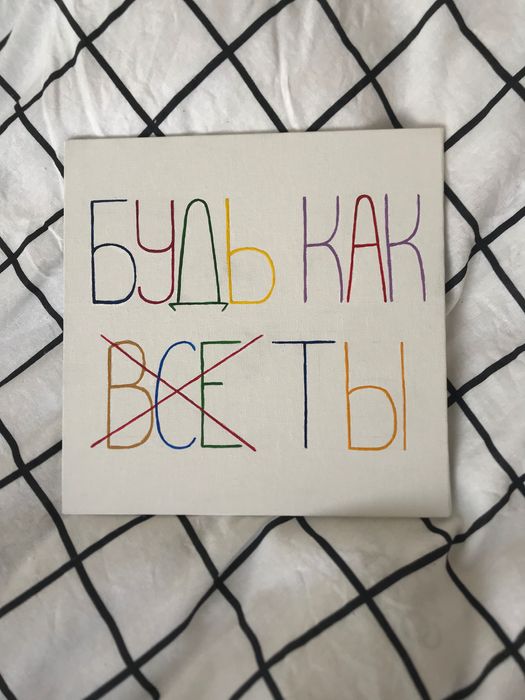 БУДЬ КАК
ВСЕ ТЫ